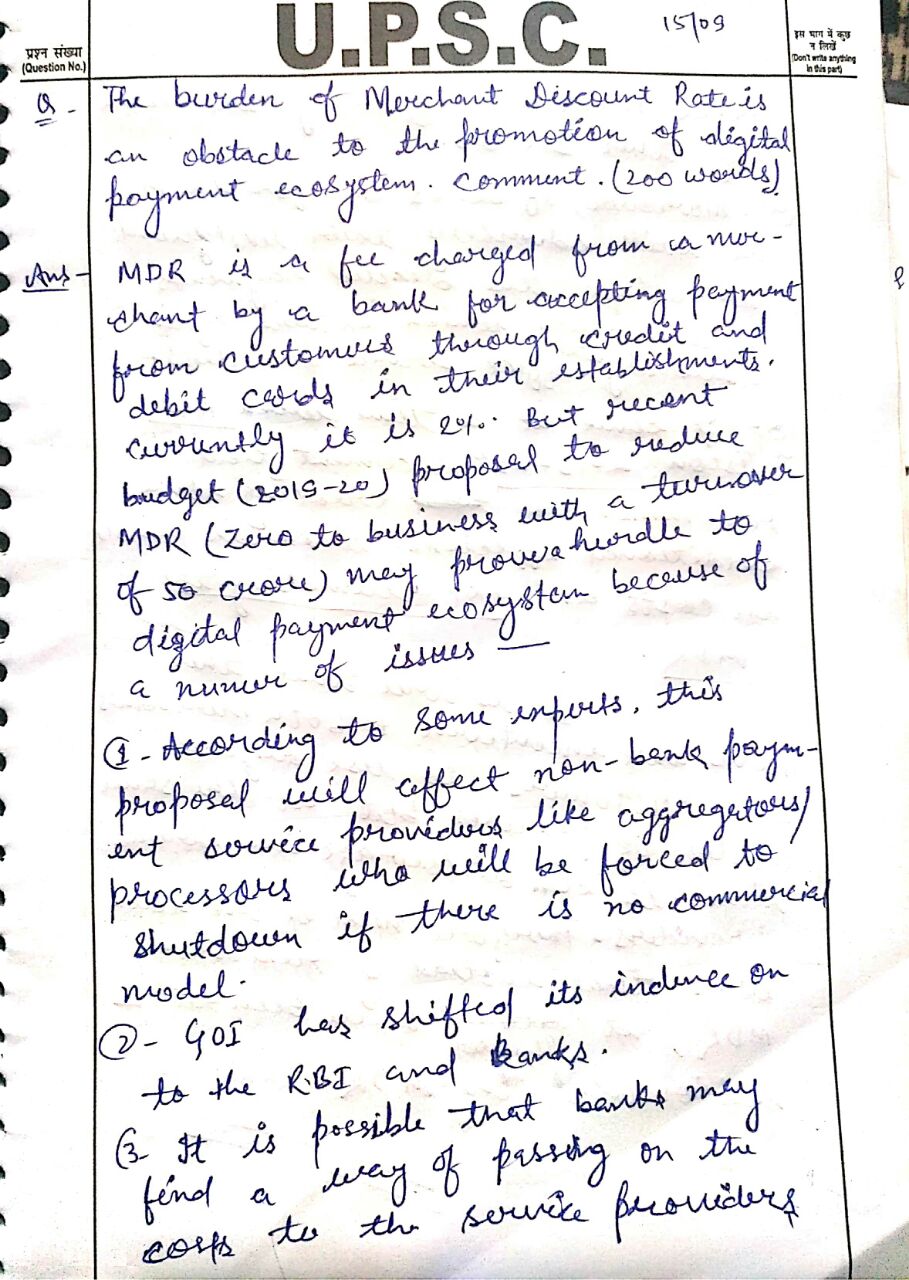 U.P.S.C.
15/09
प्रश्न संख्या
(Question No.)
इस भाग में कुछ
न लिखें
(Don't write anything
in this part)
Q - The burden of Merchant Discount Rate is
an obstacle to the promotion of digital
payment ecosystem. Comment. (200 words)
Ans - MDR is a fee charged from a mer-
chant by a bank for accepting payment
from customers through credit and
debit cards in their establishments.
Currently it is 2%. But recent
budget (2019-20) proposal to reduce
MDR (Zero to business with a turnover
of 50 crore) may prove a hurdle to
digital payment ecosystem because of
a numer of issues —
① - According to some experts, this
proposal will affect non-bank paym-
ent service providers like aggregetors/
processors who will be forced to
shutdown if there is no commercial
model.
② - GOI has shifted its indence on
to the RBI and Banks.
③ It is possible that banks may
find a way of passing on the
to the service providers